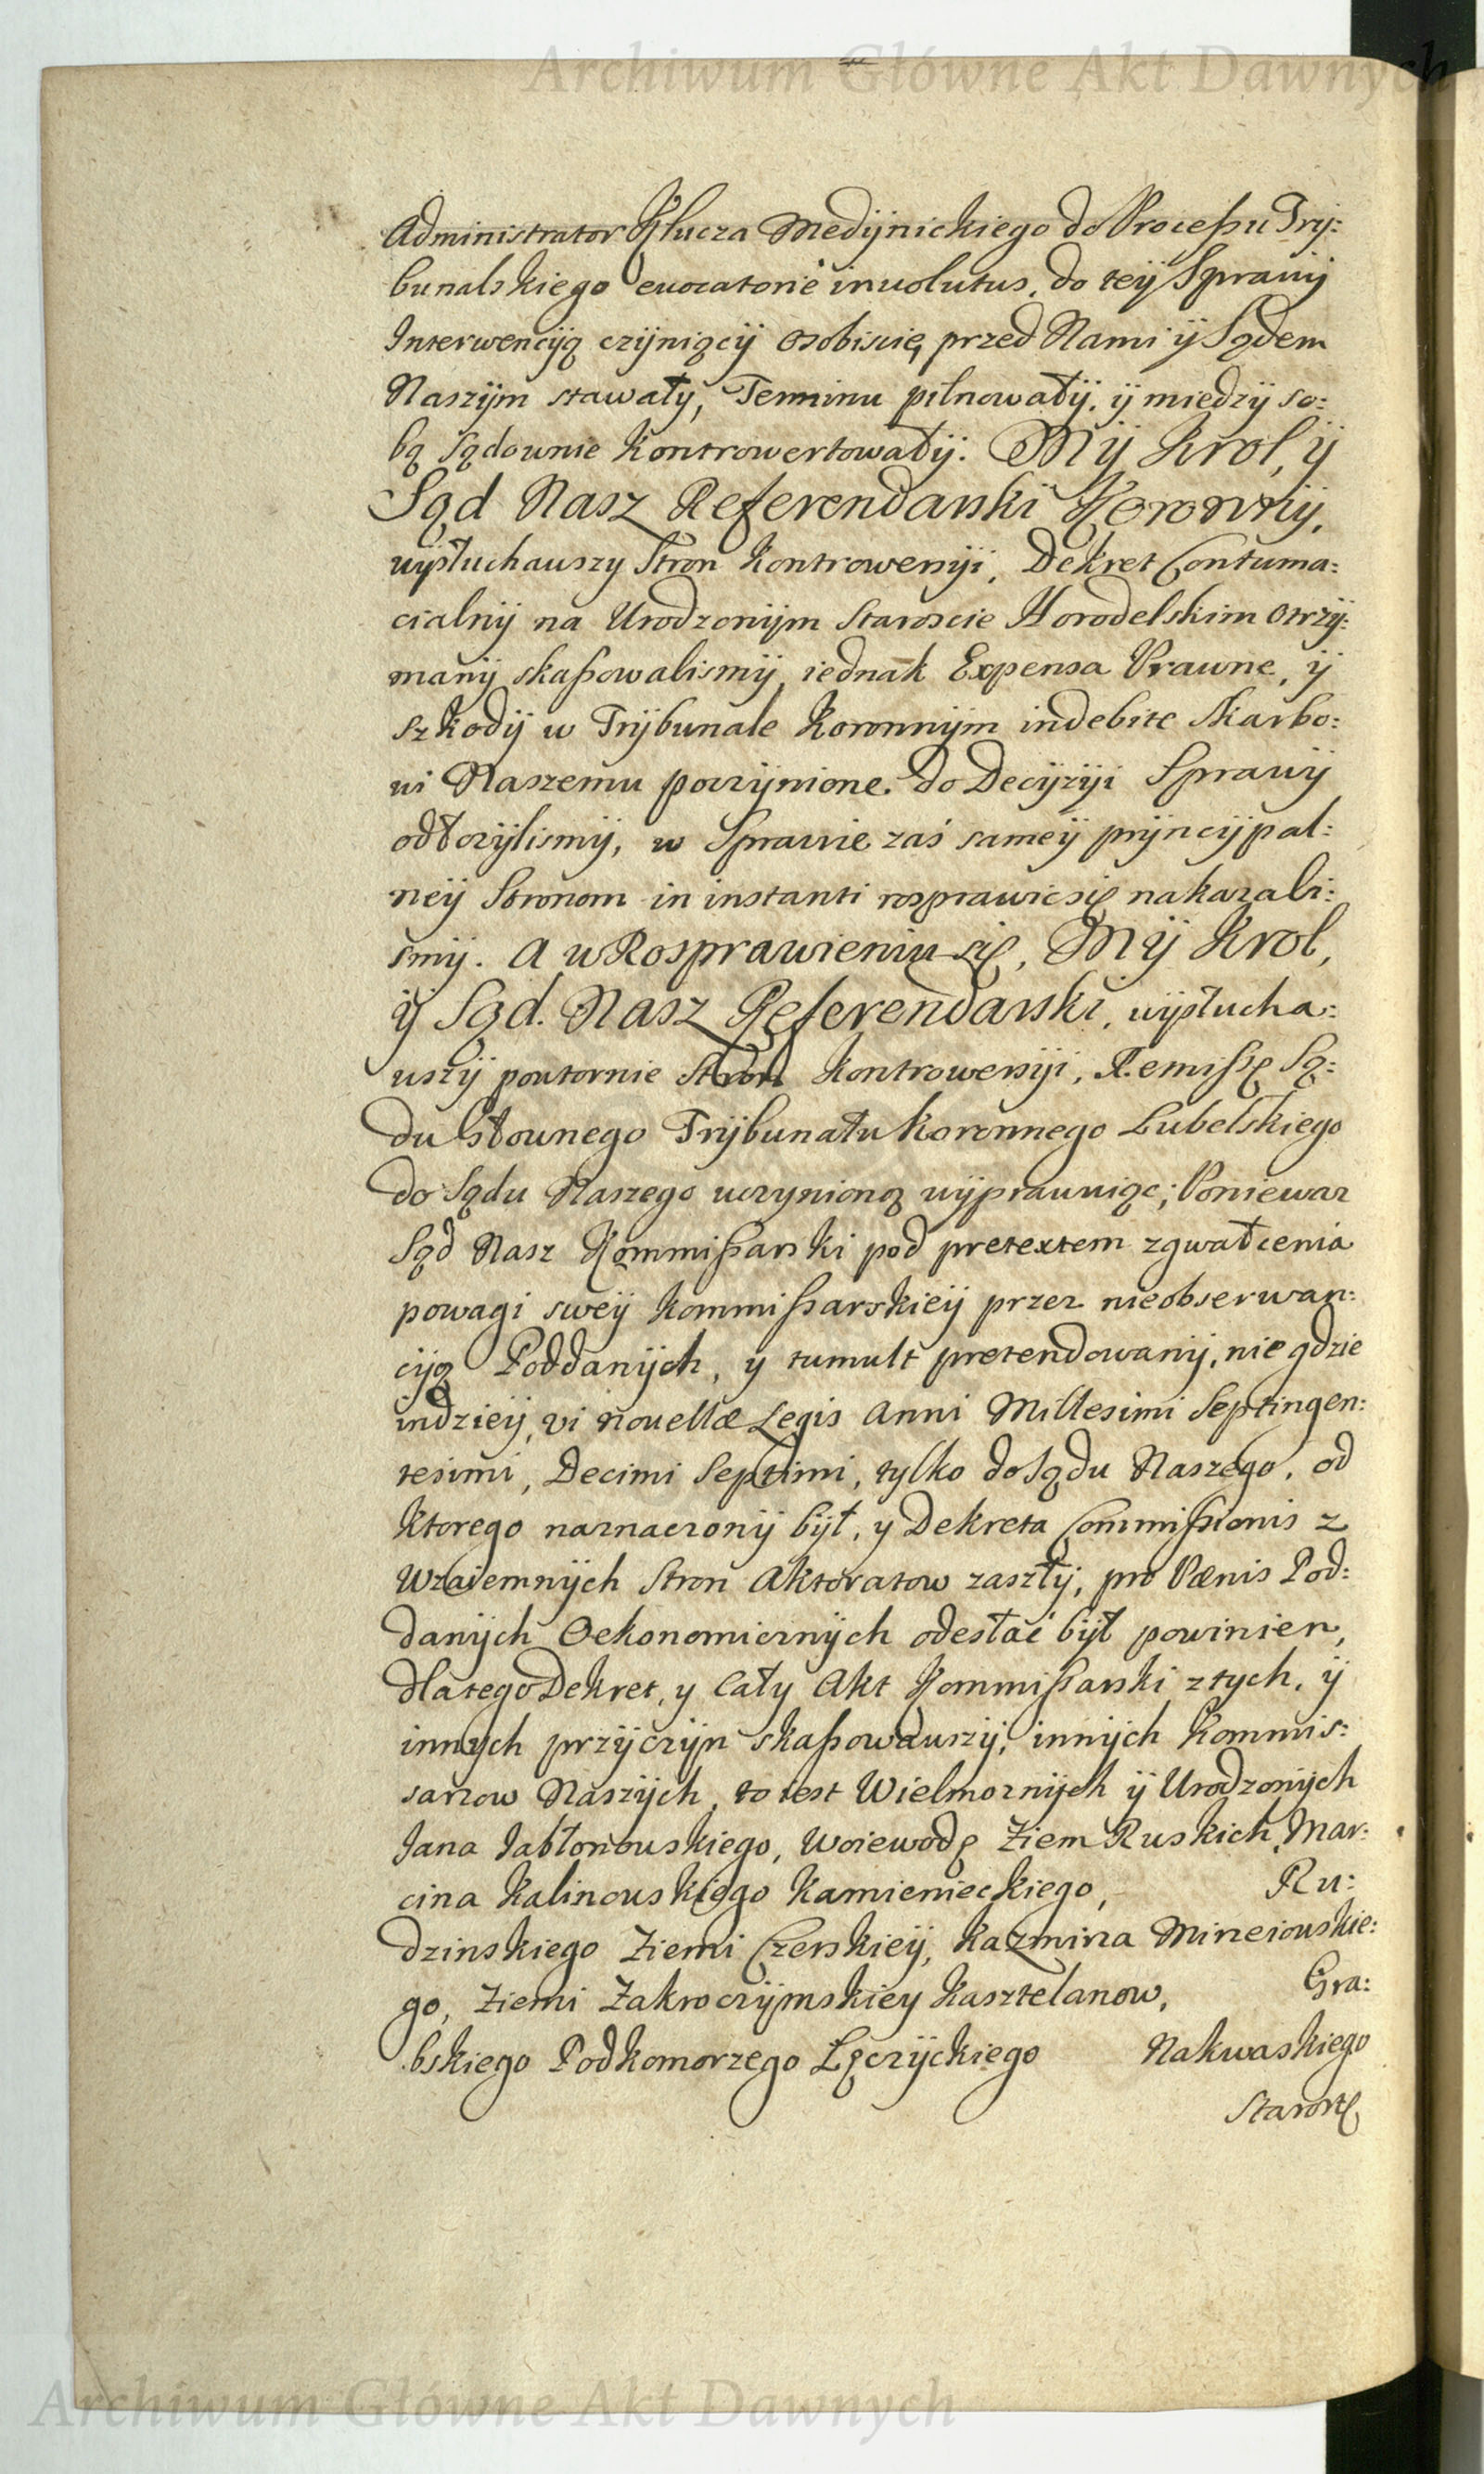 Archiwum Główne Akt Dawnych
Administrator Klucza Medijnickiego do Processu Trij:
bunalskiego evocatorie involutus, do teij Sprawij
Interwencijią czijniącij osobiscie, przed Nami ij Sądem
Naszijm stawały, Terminu pilnowałij, ij międzij so:
bą sądownie kontrowertowałij: Mij Krol, ij
Sąd Nasz Referendarski Koronnij,
wysłuchawszy Stron kontrowersiji, Dekret Contuma:
cialnij na Urodzonijm Staroscie Horodelskim otrzij:
manij skassowalismij, iednak Expensa Prawne, ij
szkodij w Trijbunale Koronnijm indebite Skarbo:
wi Naszemu poczijnione, do Decijziji Sprawij
odłożijlismij, w Sprawie zaś sameij prijncijpal:
neij Stronom in instanti rosprawic się nakazali:
smij. A w Rosprawieniu się, Mij Krol,
ij Sąd Nasz Referendarski, wijsłucha:
wszij powtornie Stron kontrowersiji, Remissę Są:
du Głownego Trijbunału Koronnego Lubelskiego
do Sądu Naszego uczynioną wijprawuiąc; Poniewaz
Sąd Nasz Kommissarski pod pretextem zgwałcenia
powagi sweij Kommissarskieij przez nieobserwan:
cijią Poddanijch, y tumult pretendowanij, nie gdzie
indzieij, vi novellæ Legis Anni Millesimi Septingen:
tesimi, Decimi Septimi, tylko do Sądu Naszego, od
ktorego naznaczonij bijł, y Dekreta Commissionis z
Wzaiemnijch Stron Aktoratow zaszłij, pro Pœnis Pod:
danijch Oekonomicznijch odesłać bijł powinien,
dlatego Dekret, y Cały Akt Kommissarski z tych, ij
innijch przijczijn skassowawszij, innijch Kommis:
sarzow Naszijch, to iest Wielmoznijch ij Urodzonijch
Jana Jabłonowskiego, Woiewodę Ziem Ruskich, Mar:
cina Kalinowskiego Kamienieckiego, Ru:
dzinskiego Ziemi Czerskieij, Kazmirza Minceiowskie:
go, Ziemi Zakroczijmskiey Kasztelanow, Gra:
bskiego Podkomorzego Łęczijckiego Nakwaskiego
Starostę
Archiwum Główne Akt Dawnych